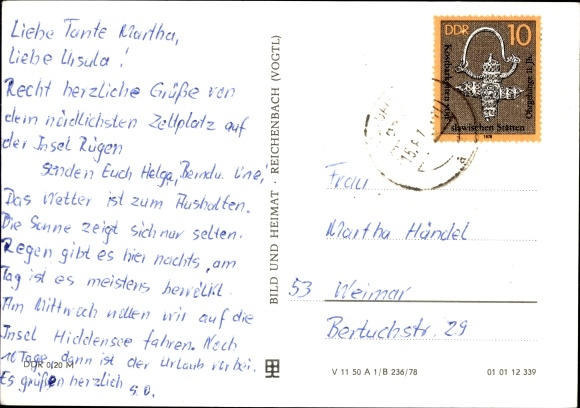 Liebe Tante Martha,
Liebe Ursula!
Recht herzliche Grüße von
dem nördlichsten Zeltplatz auf
der Insel Rügen
senden Euch Helga, Bernd u. Line,
Das Wetter ist zum Aushalten.
Die Sonne zeigt sich nur selten.
Regen gibt es hier nachts, am
Tag ist es meistens bewölkt.
Am Mittwoch wollen wir auf die
Insel Hiddensee fahren. Noch
10 Tage dann ist der Urlaub vorbei.
Es grüßen herzlich s.o.
DDR 0/20 M
BILD UND HEIMAT · REICHENBACH (VOGTL)
DDR 10
slawischen Stätten
Ohrgehänge 11. Jh.
1978
Frau
Martha Händel
53 Weimar
Bertuchstr. 29
V 11 50 A 1/B 236/78
01 01 12 339